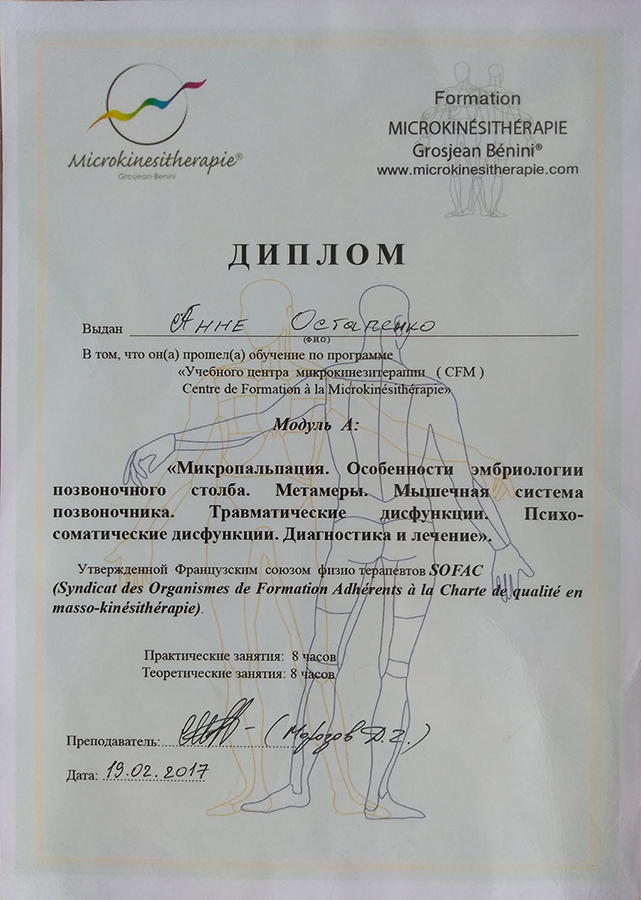 Microkinesitherapie®
Grosjean-Benini
Formation
MICROKINÉSITHÉRAPIE
Grosjean Bénini®
www.microkinesitherapie.com
ДИПЛОМ
Выдан Анне Остапенко
(Ф.И.О.)
В том, что он(а) прошел(а) обучение по программе
«Учебного центра микрокинезитерапии ( CFM )
Centre de Formation à la Microkinésithérapie»
Модуль А:
«Микропальпация. Особенности эмбриологии
позвоночного столба. Метамеры. Мышечная система
позвоночника. Травматические дисфункции. Психо-
соматические дисфункции. Диагностика и лечение».
Утвержденной Французским союзом физио терапевтов SOFAC
(Syndicat des Organismes de Formation Adhérents à la Charte de qualité en
masso-kinésithérapie).
Практические занятия: 8 часов
Теоретические занятия: 8 часов
Преподаватель: (Морозов Д.Г.)
Дата: 19.02.2017